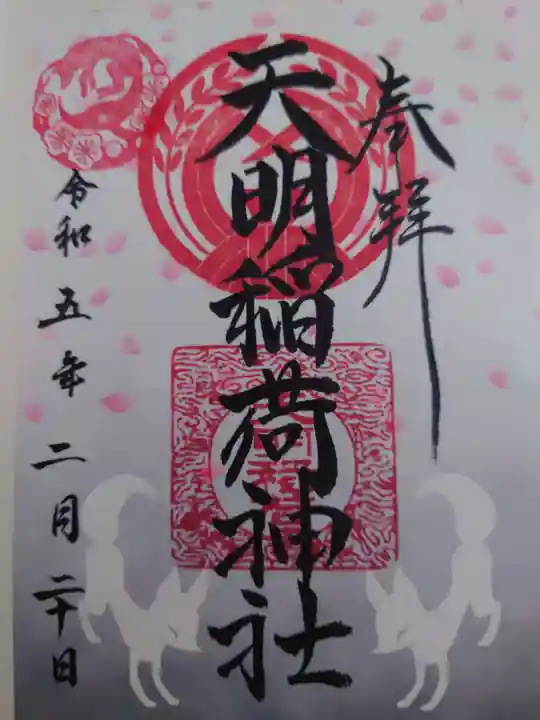 奉拝
天明稲荷神社
令和五年二月二十日